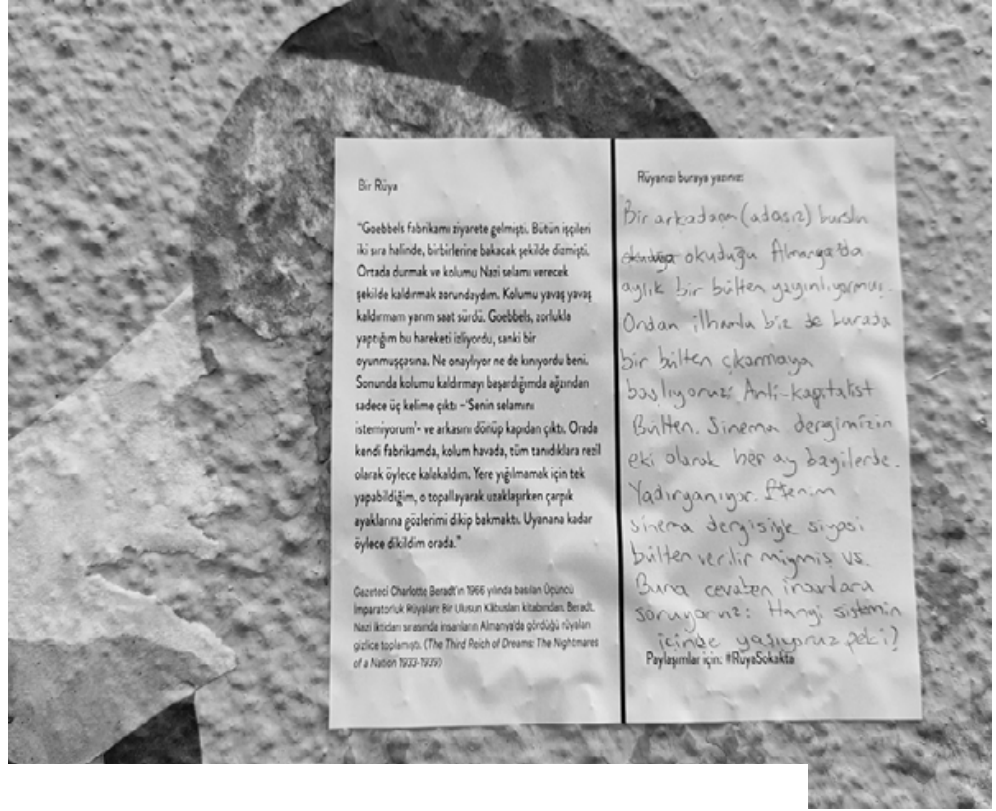 Bir Rüya
"Goebbels fabrikamı ziyarete gelmişti. Bütün işçileri
iki sıra halinde, birbirlerine bakacak şekilde dizmişti.
Ortada durmak ve kolumu Nazi selamı verecek
şekilde kaldırmak zorundaydım. Kolumu yavaş yavaş
kaldırmam yarım saat sürdü. Goebbels, zorlukla
yaptığım bu hareketi izliyordu, sanki bir
oyunmuşçasına. Ne onaylıyor ne de kınıyordu beni.
Sonunda kolumu kaldırmayı başardığımda ağzından
sadece üç kelime çıktı –'Senin selamını
istemiyorum'– ve arkasını dönüp kapıdan çıktı. Orada
kendi fabrikamda, kolum havada, tüm tanıdıklara rezil
olarak öylece kalakaldım. Yere yığılmamak için tek
yapabildiğim, o topallayarak uzaklaşırken çarpık
ayaklarına gözlerimi dikip bakmaktı. Uyanana kadar
öylece dikildim orada."
Gazeteci Charlotte Beradt'ın 1966 yılında basılan Üçüncü
İmparatorluk Rüyaları: Bir Ulusun Kâbusları kitabından. Beradt,
Nazi iktidarı sırasında insanların Almanya'da gördüğü rüyaları
gizlice toplamıştı. (The Third Reich of Dreams: The Nightmares
of a Nation 1933-1939)
Rüyanızı buraya yazınız:
Bir arkadaşın (adaşız) burslu
okuduğu Almanya'da
aylık bir bülten yayınlıyormuş.
Ondan ilhamla biz de burada
bir bülten çıkarmaya
başlıyoruz: Anti-kapitalist
Bülten. Sinema dergimizin
eki olarak her ay bayilerde.
Yadırganıyor. Efenim
sinema dergisiyle siyasi
bülten verilir miymiş vs.
Buna cevaben insanlara
soruyoruz: Hangi sistemin
içinde yaşıyoruz peki?
Paylaşımlar için: #RüyaSokakta